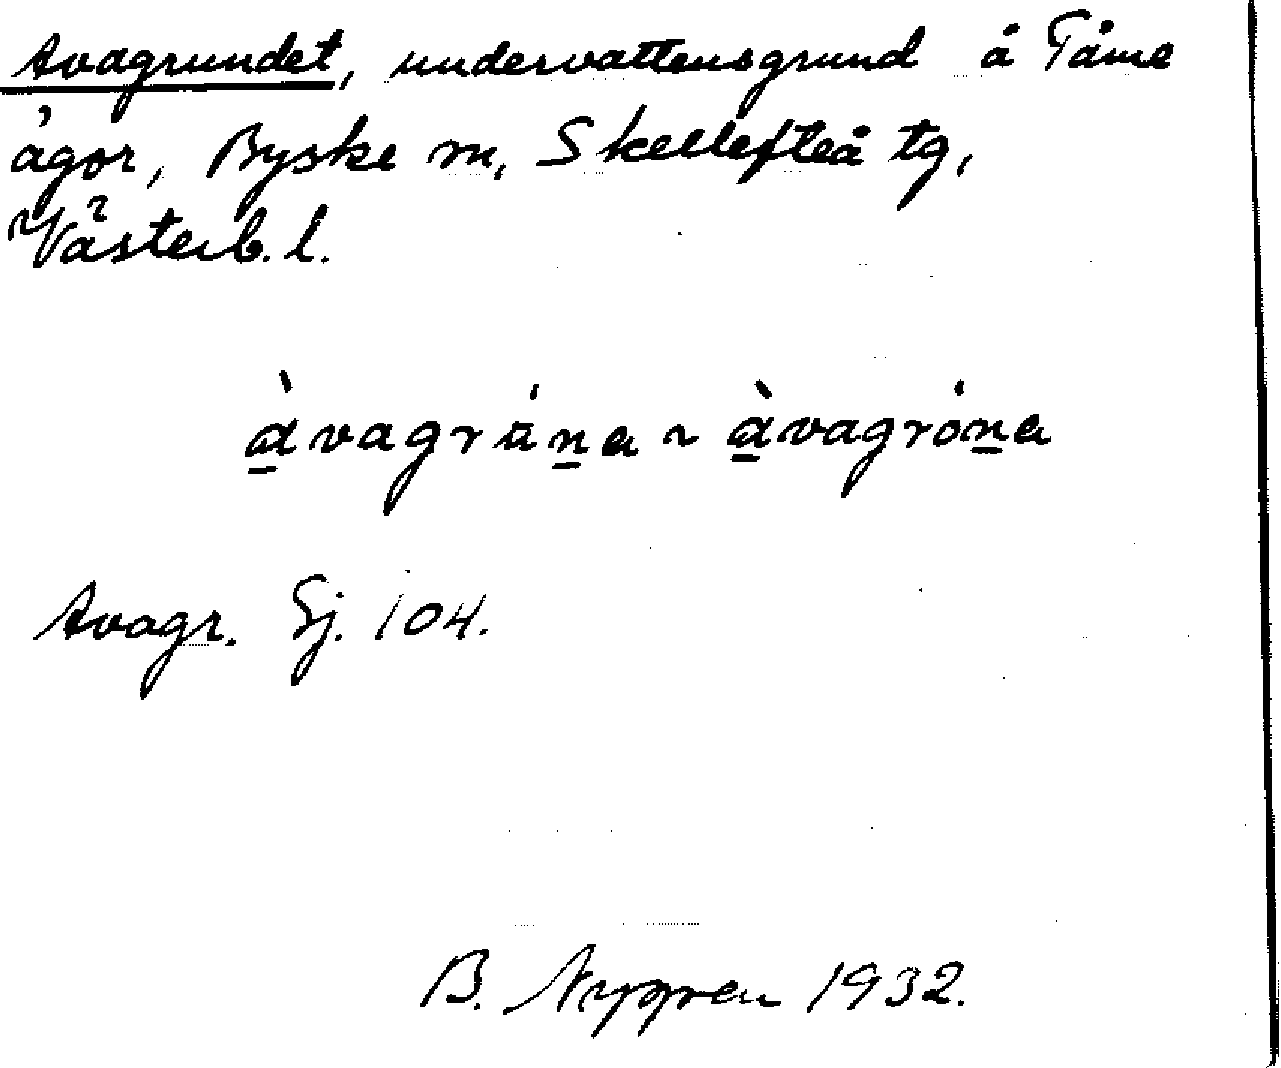 Avagrundet, undervattensgrund å Tåme
ägor, Byske sn, Skellefteå tg,
Västerb. l.
àvagrúṉa ~ àvagróṉa
Avagr. Sj. 104.
B. Nygren 1932.